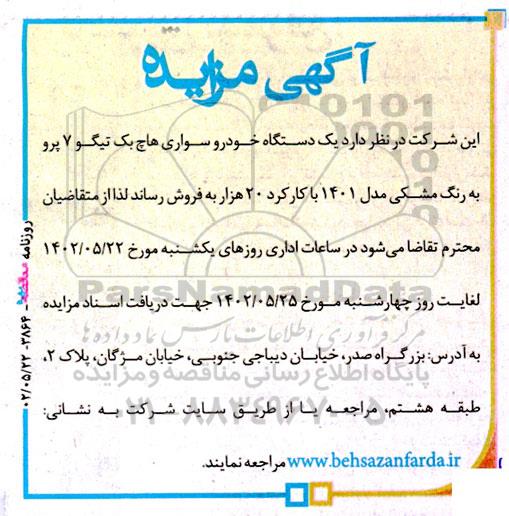 آگهی مزایده
این شرکت در نظر دارد یک دستگاه خودرو سواری هاچ بک تیگو ۷ پرو
به رنگ مشکی مدل ۱۴۰۱ با کارکرد ۲۰ هزار به فروش رساند لذا از متقاضیان
محترم تقاضا می‌شود در ساعات اداری روزهای یکشنبه مورخ ۱۴۰۲/۰۵/۲۲
لغایت روز چهارشنبه مورخ ۱۴۰۲/۰۵/۲۵ جهت دریافت اسناد مزایده
به آدرس: بزرگراه صدر، خیابان دیباجی جنوبی، خیابان مژگان، پلاک ۲،
طبقه هشتم، مراجعه یا از طریق سایت شرکت به نشانی:
www.behsazanfarda.ir مراجعه نمایند.
ParsNamadData
مرکز فرآوری اطلاعات پارس نماد داده ها
پایگاه اطلاع رسانی مناقصه و مزایده
۰۲۱-۸۸۳۴۹۶۷۰-۵
روزنامه
۳۸۶۴-۰۲/۰۵/۲۲